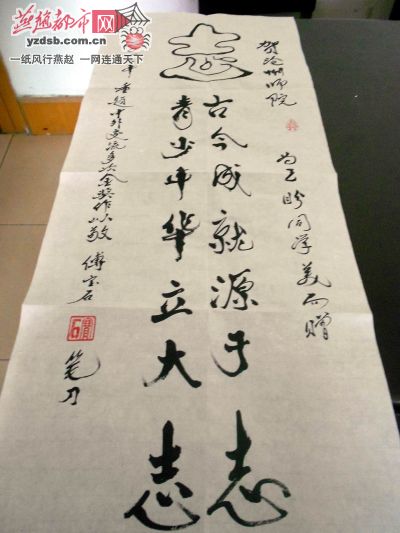 燕趙都市网
yzdsb.com.cn
一纸风行燕赵 一网连通天下
贺沧州师院 为王盼同学美而赠
古今成就源于志
青少年华立大志
中外交流多次金奖作以敬 傅宝石
笔刀